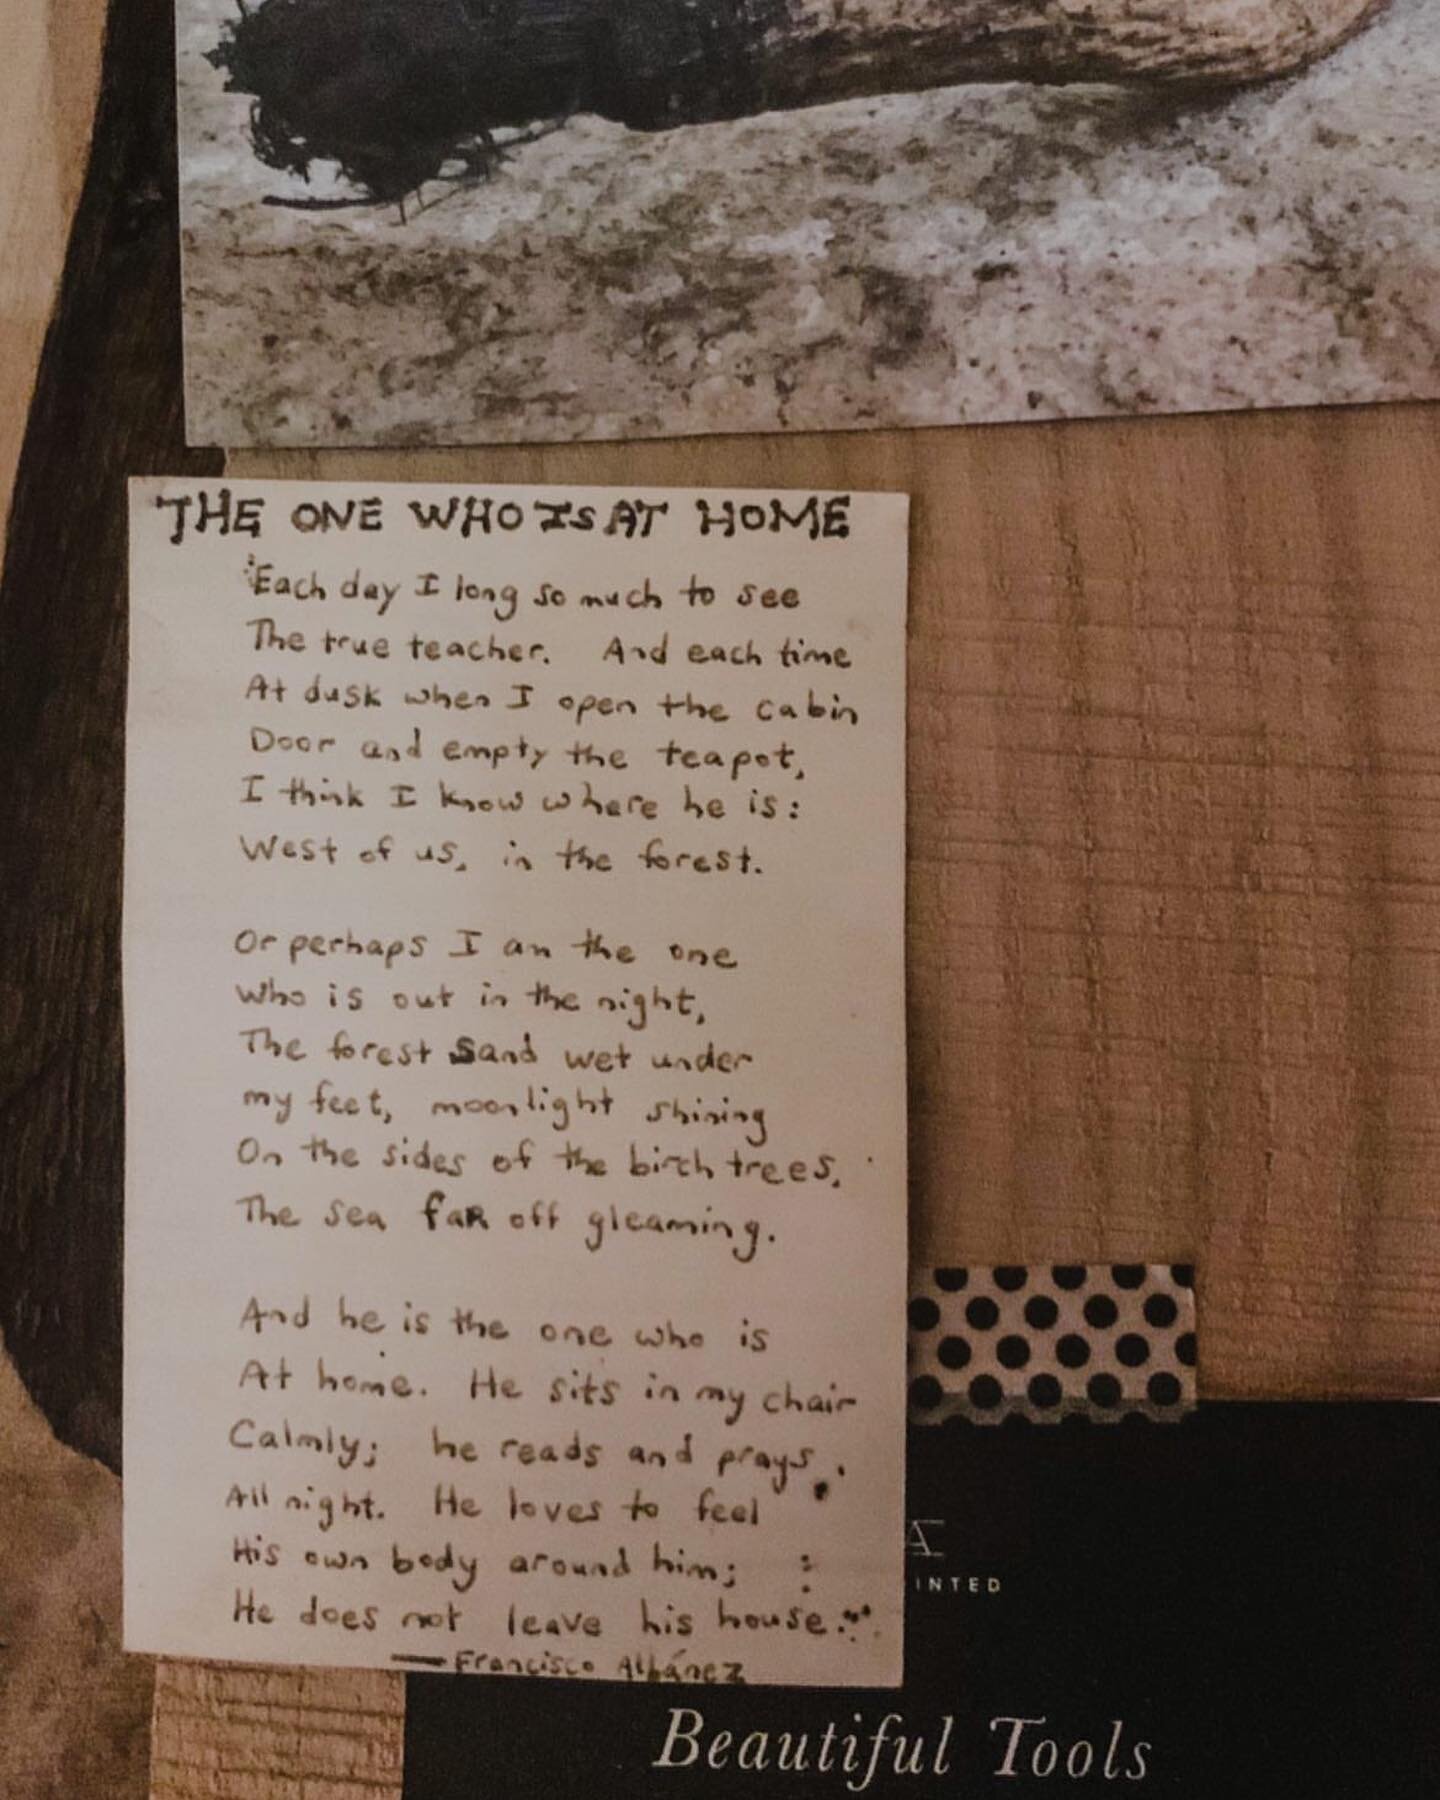 THE ONE WHO IS AT HOME
Each day I long so much to see
The true teacher. And each time
At dusk when I open the cabin
Door and empty the teapot,
I think I know where he is:
West of us, in the forest.
Or perhaps I am the one
Who is out in the night,
The forest sand wet under
my feet, moonlight shining
On the sides of the birch trees,
The sea far off gleaming.
And he is the one who is
At home. He sits in my chair
Calmly; he reads and prays
All night. He loves to feel
His own body around him;
He does not leave his house.
— Francisco Albánez
INTED
Beautiful Tools